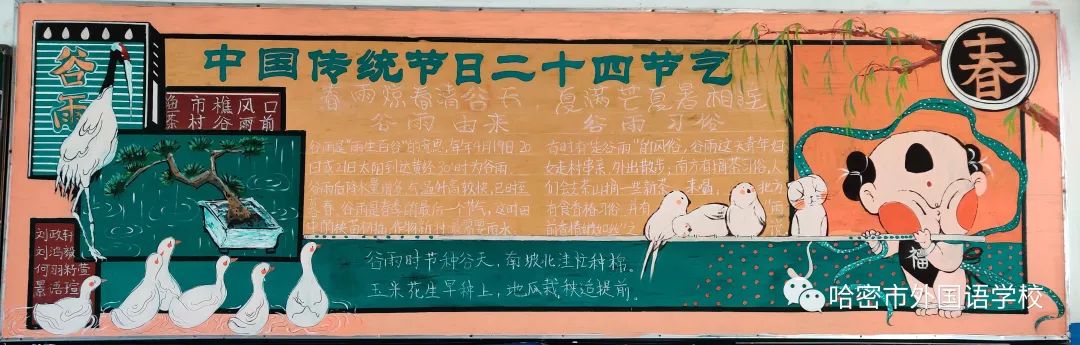 谷雨
中国传统节日二十四节气
春
渔市樵风口
茶村谷雨前
春雨惊春清谷天
谷雨 由来
谷雨是"雨生百谷"的意思,每年4月19日20
日或21日太阳到达黄经30°时为谷雨。
谷雨后降水量增多,气温升高较快,已时至
暮春。谷雨是春季的最后一个节气,这时田
中的秧苗初插
雨水。
夏满芒夏暑相连
谷雨 习俗
古时有"走谷雨"的风俗,谷雨这天青年妇
女走村串亲,外出散步,南方有摘茶习俗,人
们会去茶山摘一些新茶 来喝 北方
有食香椿习俗
雨
前香椿嫩如丝"之
谷雨时节种谷天,南坡北洼忙种棉。
玉米花生早种上,地瓜栽秧适提前。
刘政轩
刘鸿毅
何羽籽萱
景语瑄
福
哈密市外国语学校